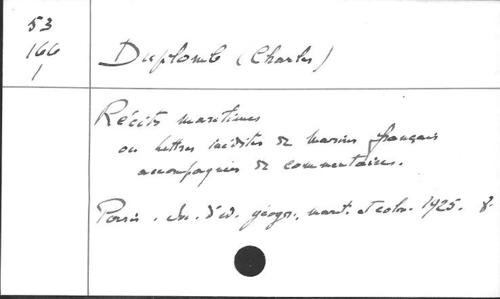 53
166
1
Duplomb (Charles)
Récits maritimes
ou lettres inédites de marins français
accompagnées de commentaires.
Paris. Soc. d'éd. géogr., marit. et colon. 1925. 8-